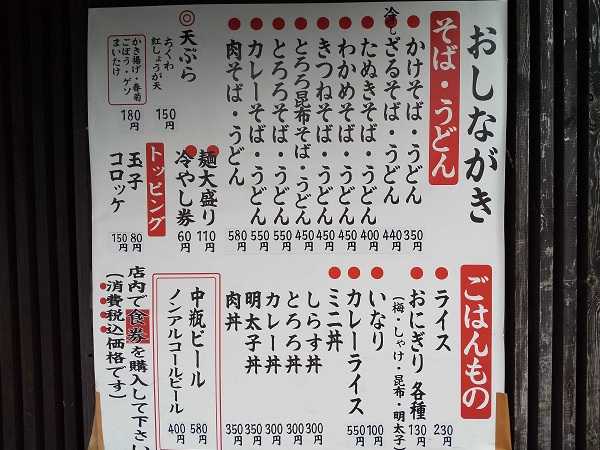 おしながき
そば・うどん
かけそば・うどん 350円
冷しざるそば・うどん 440円
たぬきそば・うどん 400円
わかめそば・うどん 450円
きつねそば・うどん 450円
とろろ昆布そば・うどん 450円
とろろそば・うどん 550円
カレーそば・うどん 550円
肉そば・うどん 580円
麺大盛り 110円
冷やし券 60円
◎天ぷら
ちくわ
紅しょうが天
150円
かき揚げ・春菊
ごぼう・ゲソ
まいたけ
180円
トッピング
玉子 80円
コロッケ 150円
ごはんもの
ライス 230円
おにぎり 各種 130円
(梅・しゃけ・昆布・明太子)
いなり 100円
カレーライス 550円
ミニ丼
しらす丼 300円
とろろ丼 300円
カレー丼 300円
明太子丼 350円
肉丼 350円
中瓶ビール 580円
ノンアルコールビール 400円
店内で食券を購入して下さい
(消費税込価格です)